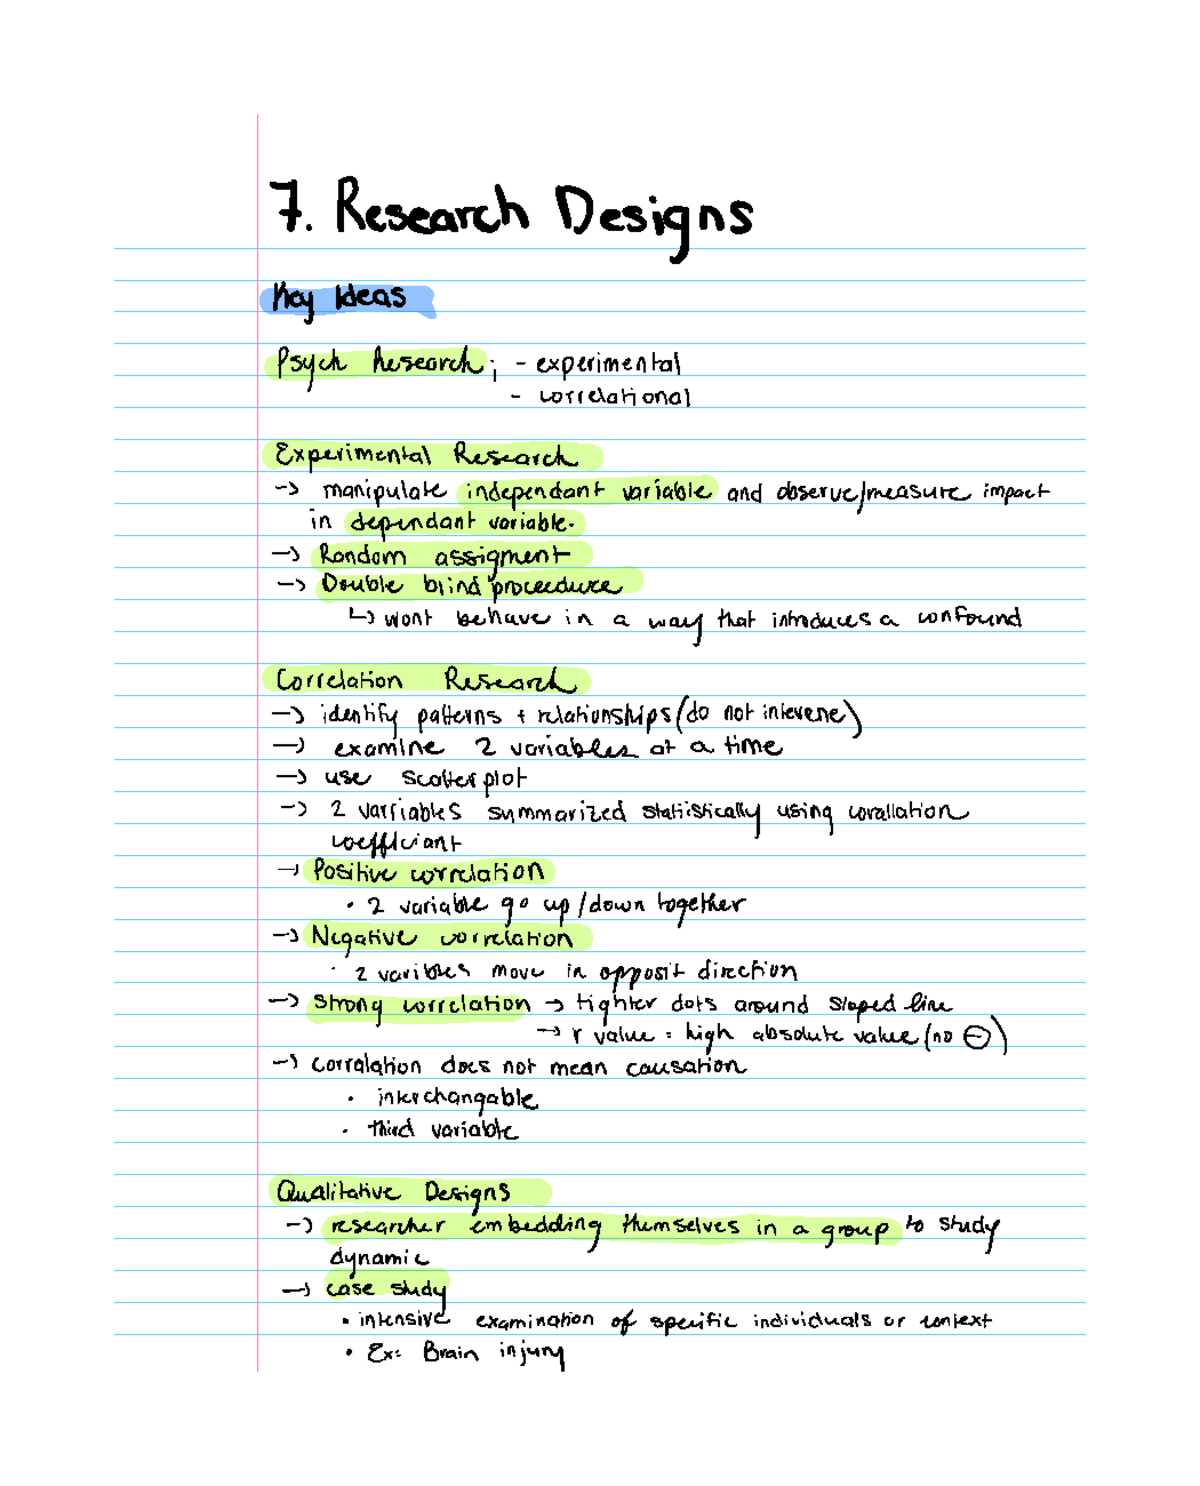 7. Research Designs
Key Ideas
Psych Research; - experimental
- correlational
Experimental Research
-> manipulate independant variable and observe/measure impact
in dependant variable.
-> Random assigment
-> Double blind proceedure
↳ wont behave in a way that introduces a confound
Correlation Research
-> identify patterns + relationships (do not intevene)
-> examine 2 variables at a time
-> use scatter plot
-> 2 varriables summarized statistically using corallation
coefficiant
-> Positive correlation
• 2 variable go up/down together
-> Negative correlation
• 2 varibles move in opposit direction
-> strong correlation -> tighter dots around sloped line
-> r value = high absolute value (no ⊖)
-> corralation does not mean causation
• interchangable
• third variable
Qualitative Designs
-> researcher embedding themselves in a group to study
dynamic
-> case study
• intensive examination of specific individuals or context
• Ex: Brain injury